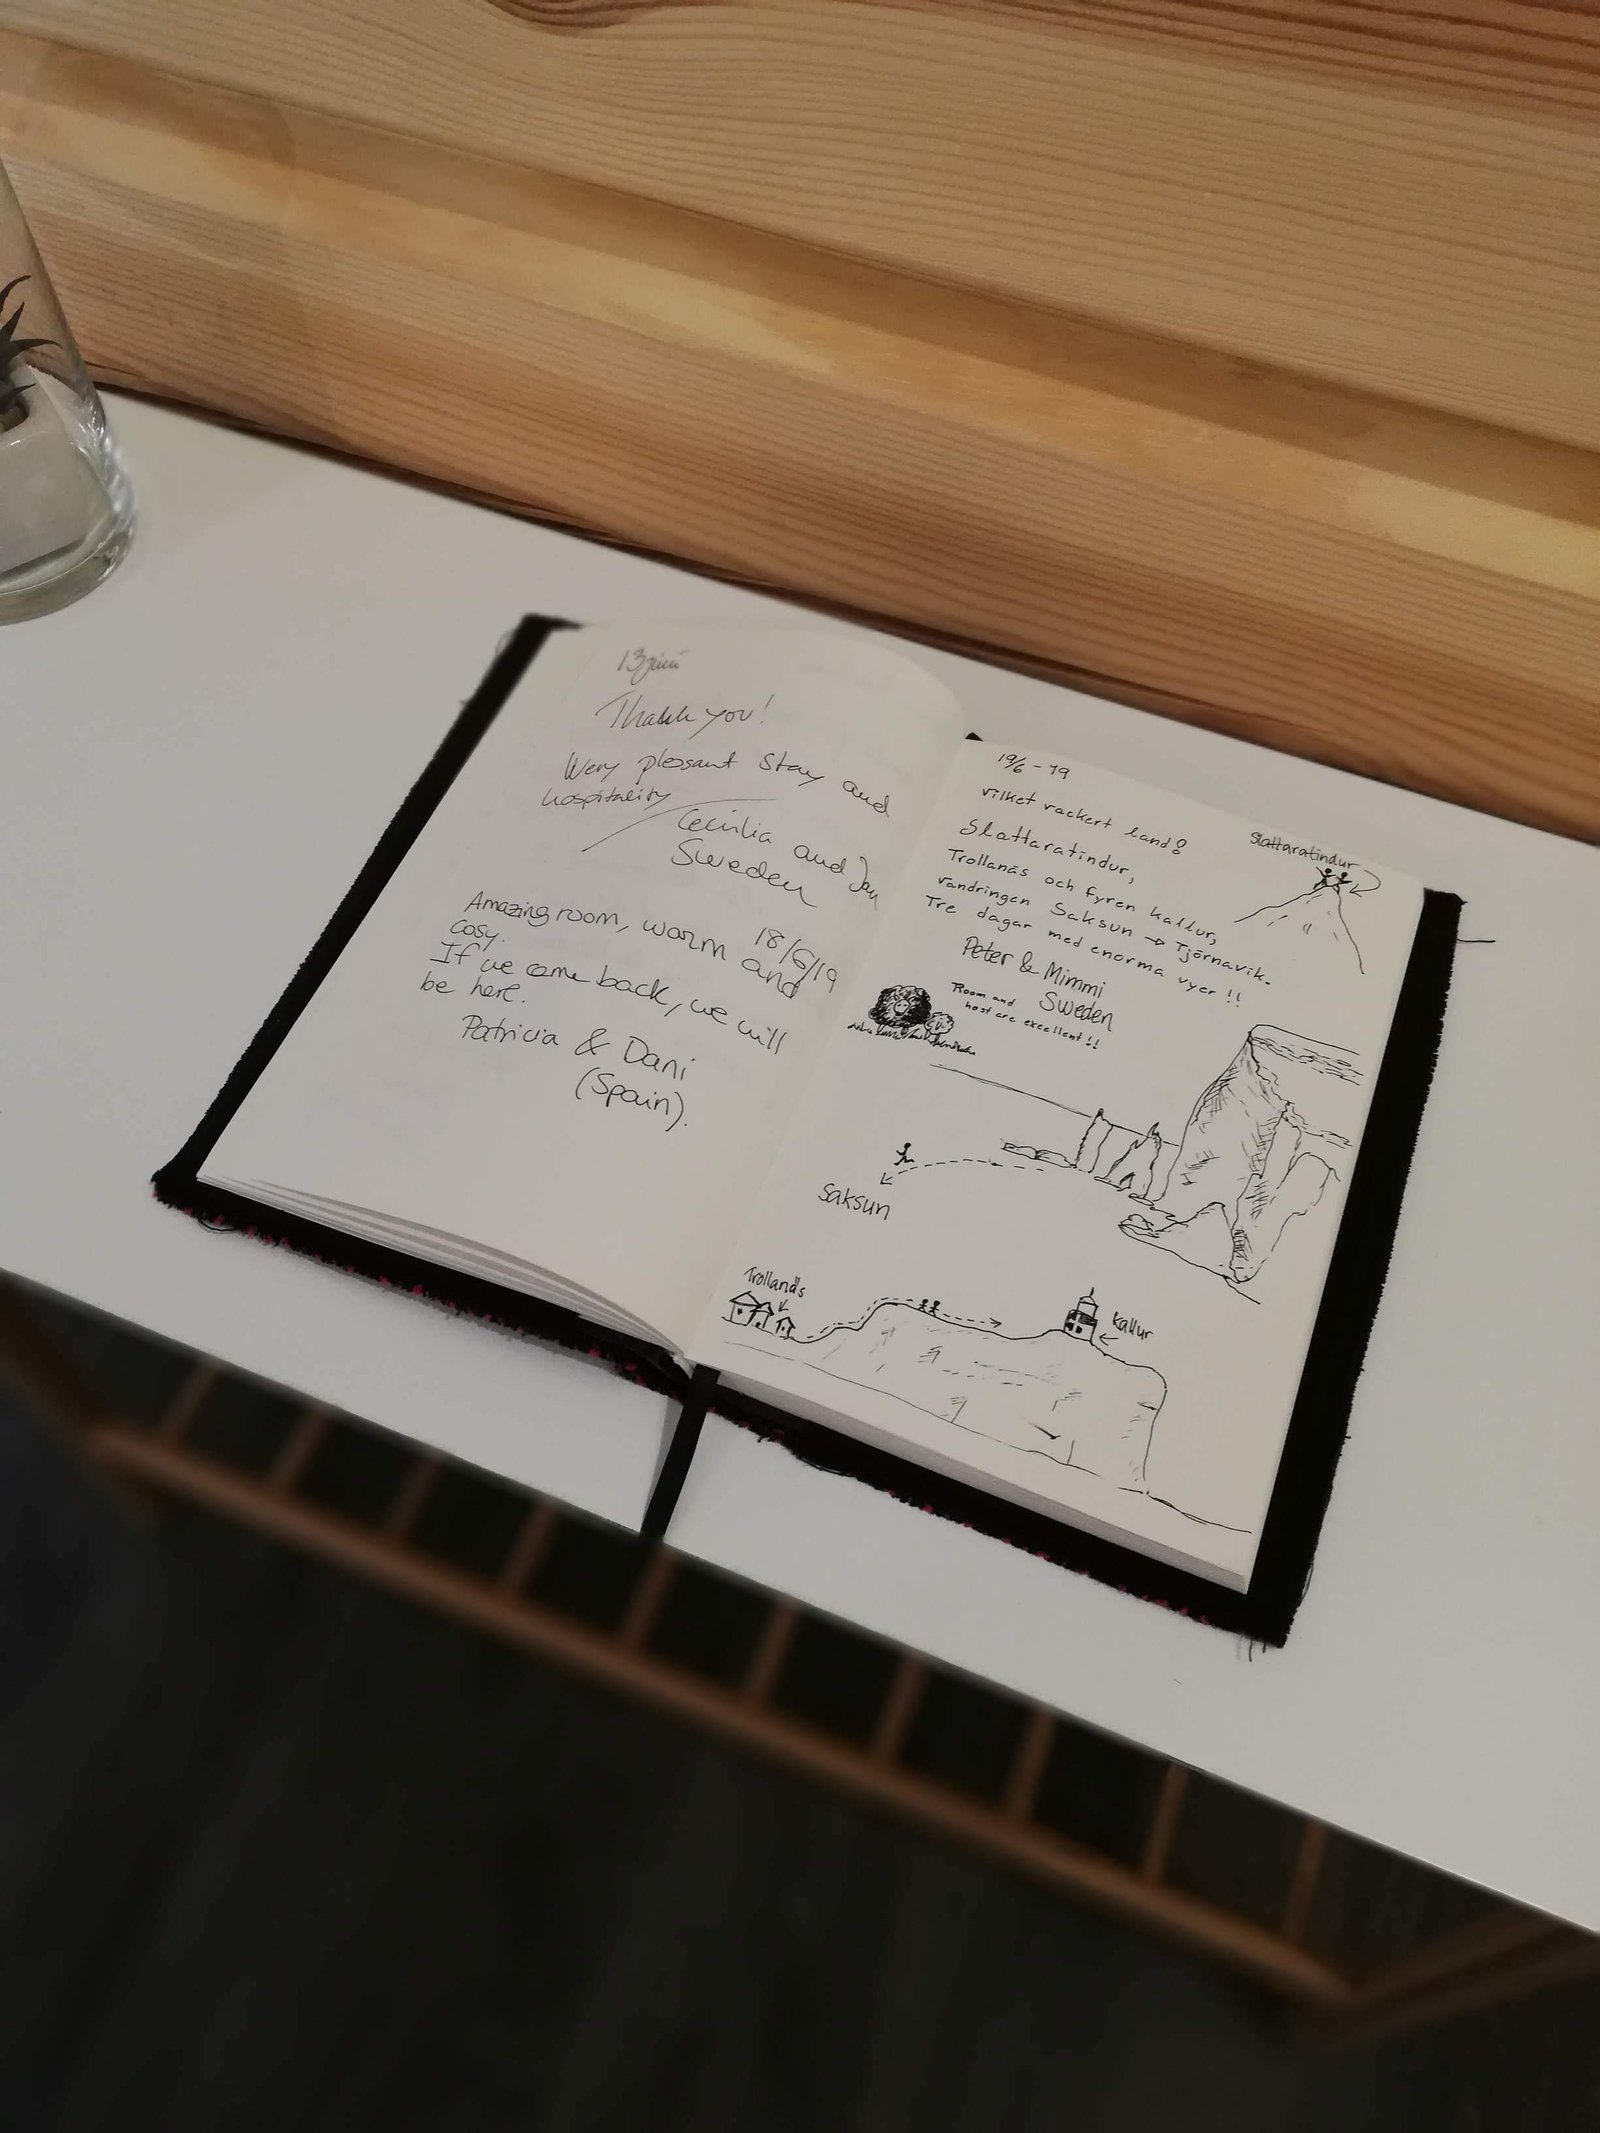 13 juni
Thank you!
Wery plesant stay and
hospitality
Cecilia and Jan
Sweden
18/6/19
Amazing room, warm and
cosy.
If we come back, we will
be here.
Patricia & Dani
(Spain).
19/6-19
vilket vackert land!
Slattaratindur,
Trollanäs och fyren kallur,
vandringen Saksun → Tjörnavik.
Tre dagar med enorma vyer!!
Peter & Mimmi
Sweden
Room and
host are excellent!!
Slattaratindur
Saksun
Trollanäs
Kallur